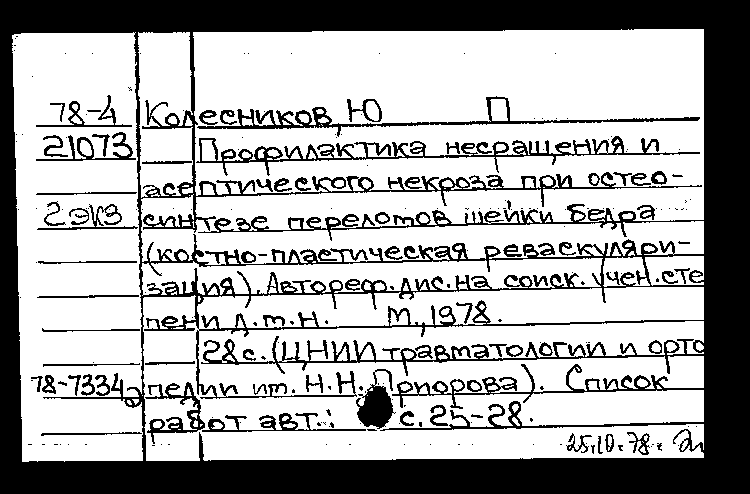 78-4 Колесников, Ю П
21073 Профилактика несращения и
асептического некроза при остео-
2 экз синтезе переломов шейки бедра
(костно-пластическая реваскуляри-
зация). Автореф. дис. на соиск. учен. сте
пени д.т.н. М., 1978.
28 с. (ЦНИИ травматологии и орто
78-7334а педии им. Н.Н. Приорова). Список
работ авт.: с. 25-28.
25.10.78.